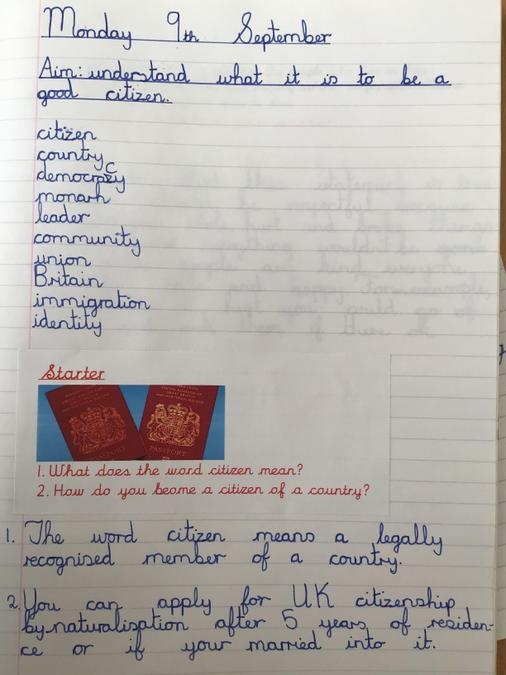 Monday 9th September
Aim: understand what it is to be a
good citizen.
citizen
country
democracy
monarh
leader
community
union
Britain
immigration
identity
Starter
PASSPORT
PASSPORT
1. What does the word citizen mean?
2. How do you beome a citizen of a country?
1. The word citizen means a legally
recognised member of a country.
2. You can apply for UK citizenship
by naturalisation after 5 years of residen-
ce or if your married into it.